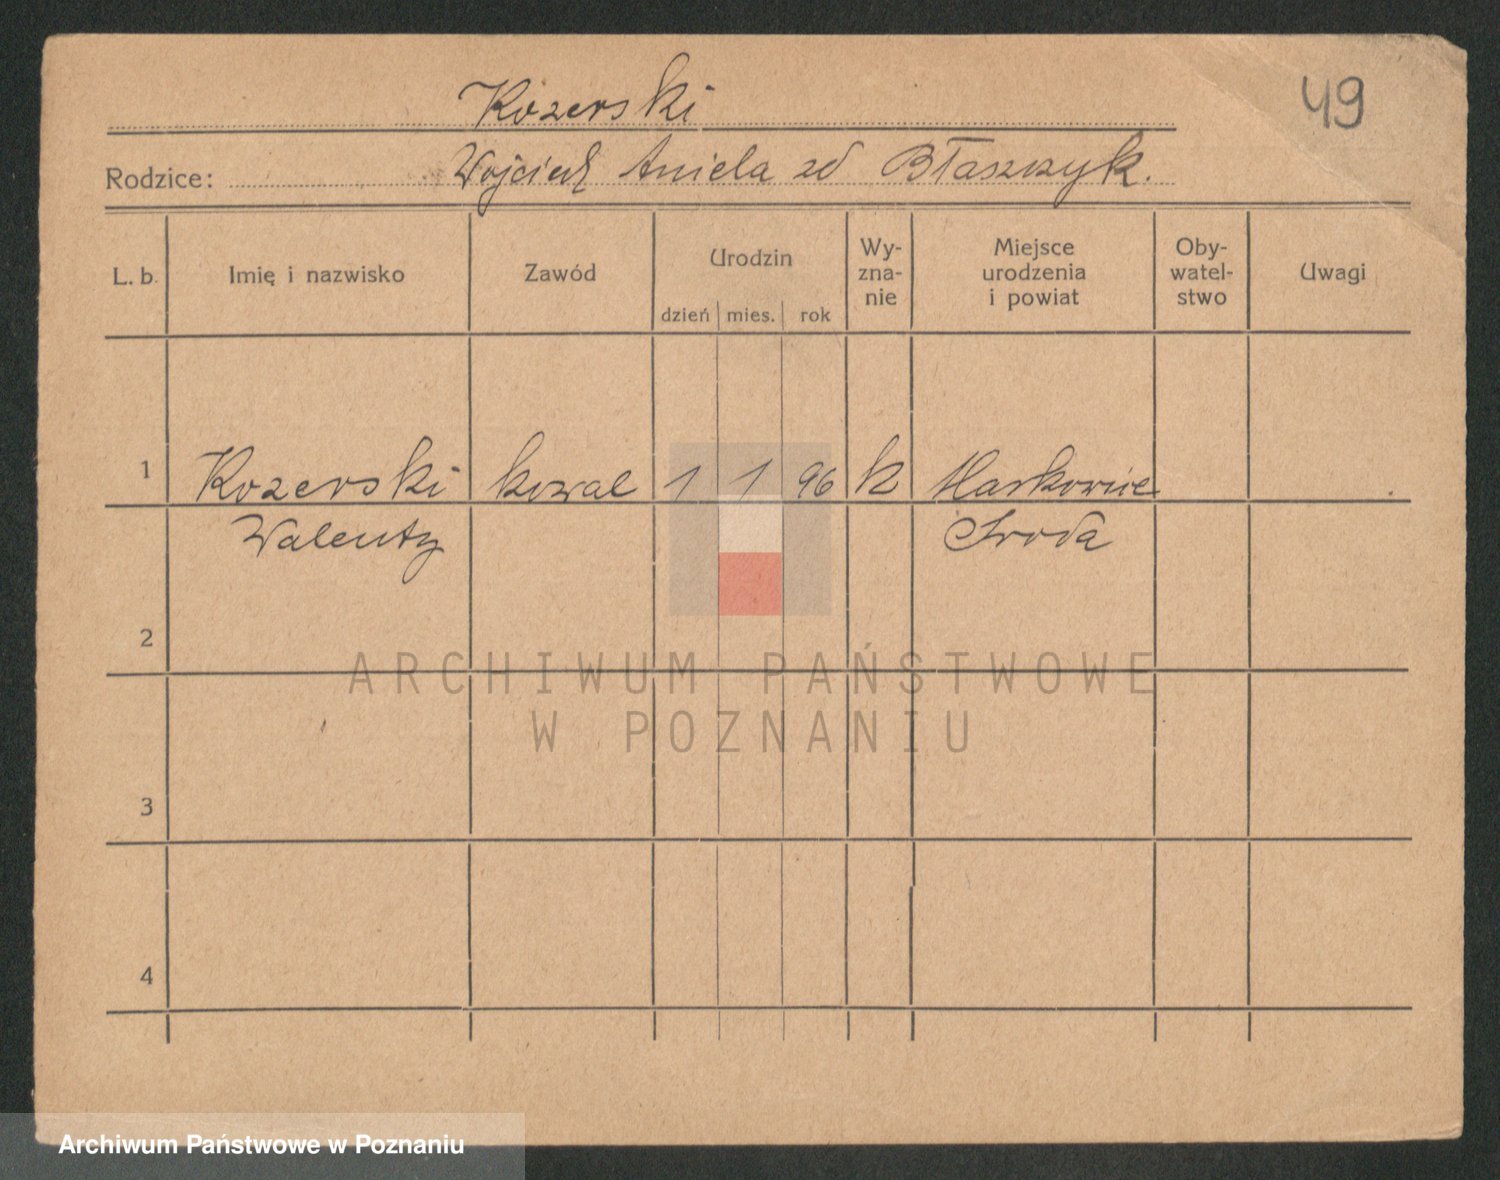 49
Kozerski
Rodzice: Wojciech Aniela zd Błaszczyk.
L. b. Imię i nazwisko Zawód Urodzin dzień mies. rok Wy-zna-nie Miejsce urodzenia i powiat Oby-watel-stwo Uwagi
1 Kozerski kowal 1 1 96 k Markowice
Walenty Środa
2
3
4
ARCHIWUM PAŃSTWOWE
W POZNANIU
Archiwum Państwowe w Poznaniu